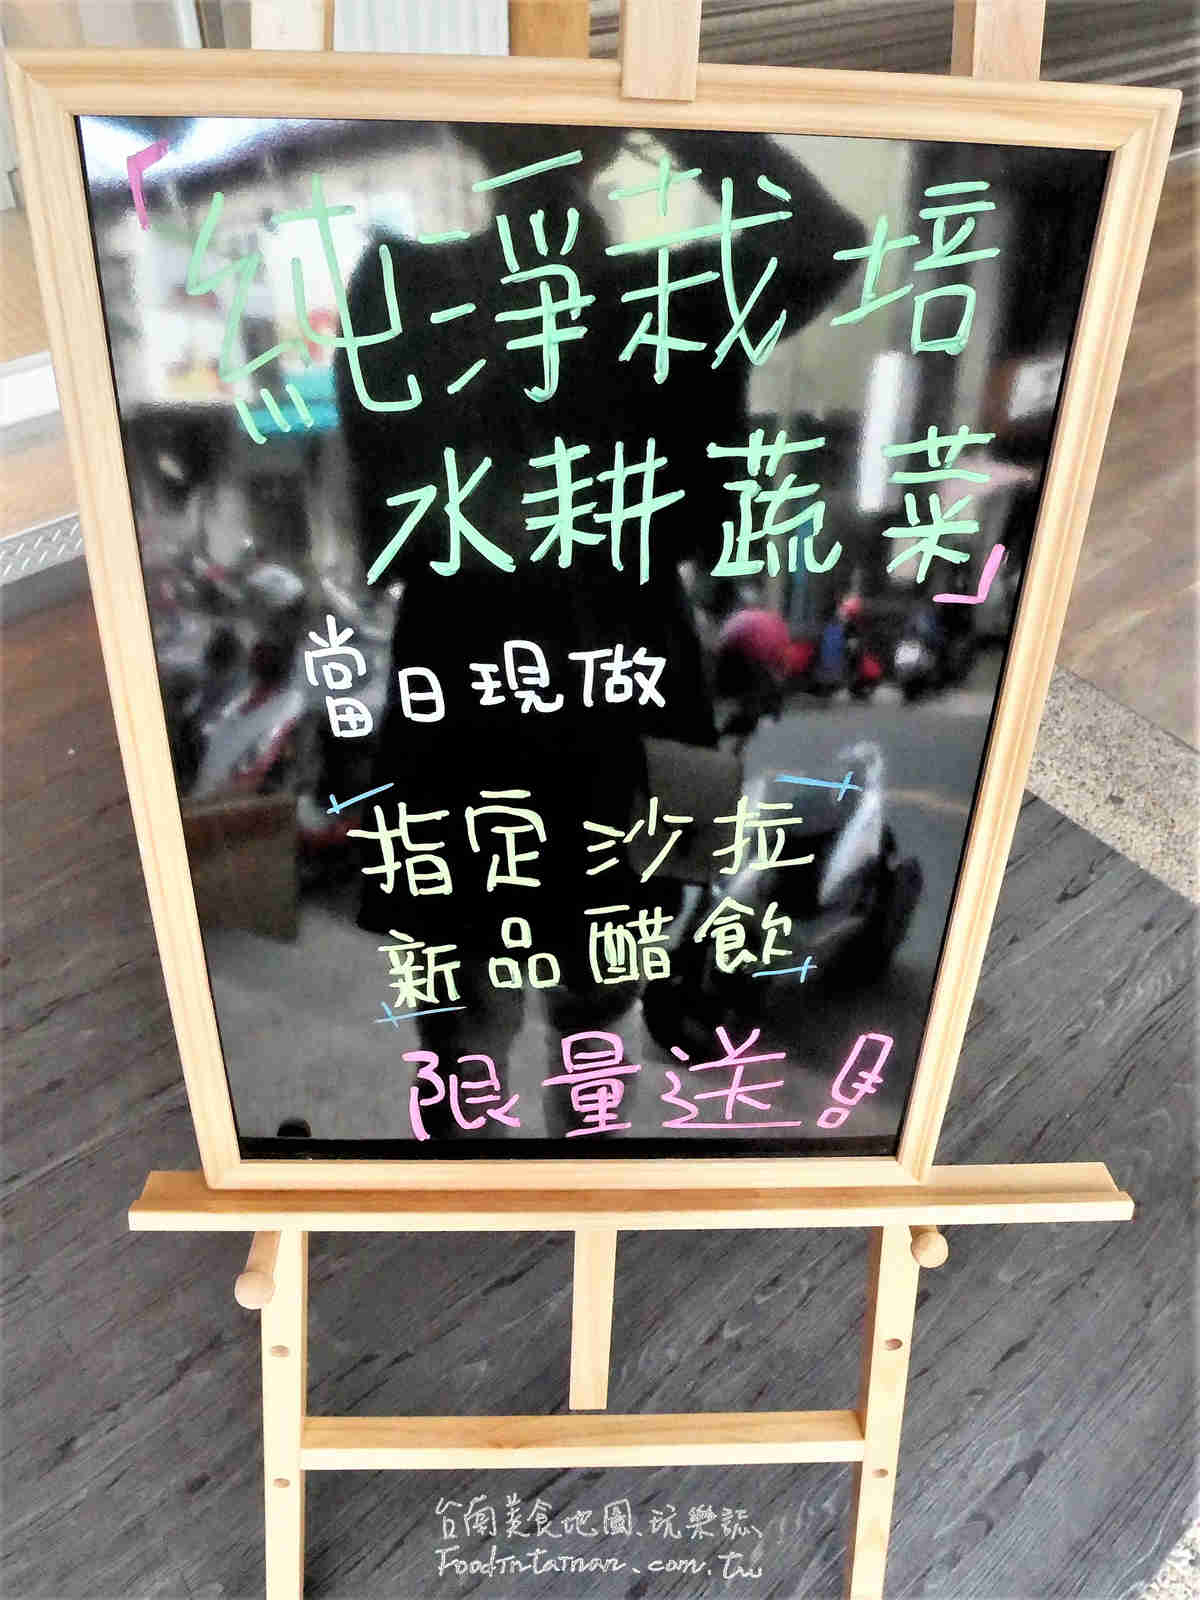 「純淨栽培
水耕蔬菜」
當日現做
指定沙拉
新品醋飲
限量送!
台南美食地圖、玩樂誌、
FoodInTainan.com.tw